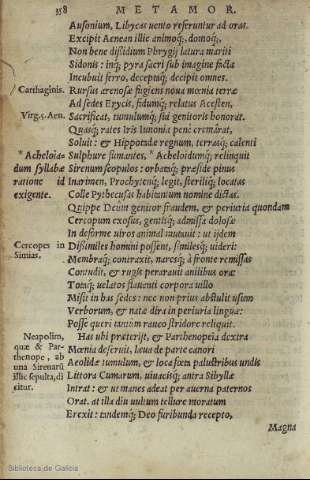 358 METAMOR.
Ausonium, Libycas uento referuntur ad oras.
Excipit Aenean illic animoq;, domoq;,
Non bene discidium Phrygij latura mariti
Sidonis: inq; pyra sacri sub imagine facta
Incubuit ferro, deceptaq; decipit omnes.
Carthaginis. Rursus arenosæ fugiens noua mœnia terræ
Ad sedes Erycis, fidumq; relatus Acesten,
Virg.5.Aen. Sacrificat, tumulumq; sui genitoris honorat.
Quasq; rates Iris Iunonia penè cremârat,
Soluit: & Hippotadæ regnum, terrasq; calenti
*Acheloia- Sulphure fumantes, *Acheloidumq; relinquit
dum syllabæ Sirenum scopulos: orbataq; præside pinus
ratione id Inarimen, Prochytenq; legit, sterilíq; locatas
exigente. Colle Pythecusas habitantum nomine dictas.
Quippe Deûm genitor fraudem, & periuria quondam
Cercopum exosus, gentisq; admissa dolosæ
In deforme uiros animal mutauit: ut ijdem
Cercopes in Dissimiles homini possent, similesq; uideri:
Simias. Membraq; contraxit, naresq; à fronte remissas
Contudit, & rugis perarauit anilibus ora:
Totoq; uelatos flauenti corpora uillo
Misit in has sedes: nec non prius abstulit usum
Verborum, & natæ dira in periuria linguæ:
Posse queri tantùm rauco stridore reliquit.
Neapolim, Has ubi præterijt, & Parthenopeia dextra
quæ & Par- Mœnia deseruit, læua de parte canori
thenope, ab Aeolidæ tumulum, & loca fœta palustribus undis
una Sirenarū Littora Cumarum, uiuacisq; antra Sibyllæ
illic sepulta, di Intrat: & ut manes adeat per auerna paternos
citur. Orat. at illa diu uultum tellure moratum
Erexit: tandemq; Deo furibunda recepto,
Magna
Biblioteca de Galicia